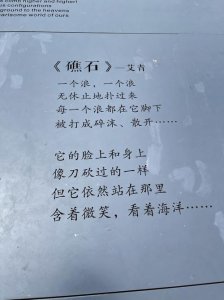 s configurations
ground to the heavens
earisome world of ours.
《礁石》—艾青
一个浪，一个浪
无休止地扑过来
每一个浪都在它脚下
被打成碎沫、散开……
它的脸上和身上
像刀砍过的一样
但它依然站在那里
含着微笑，看着海洋……